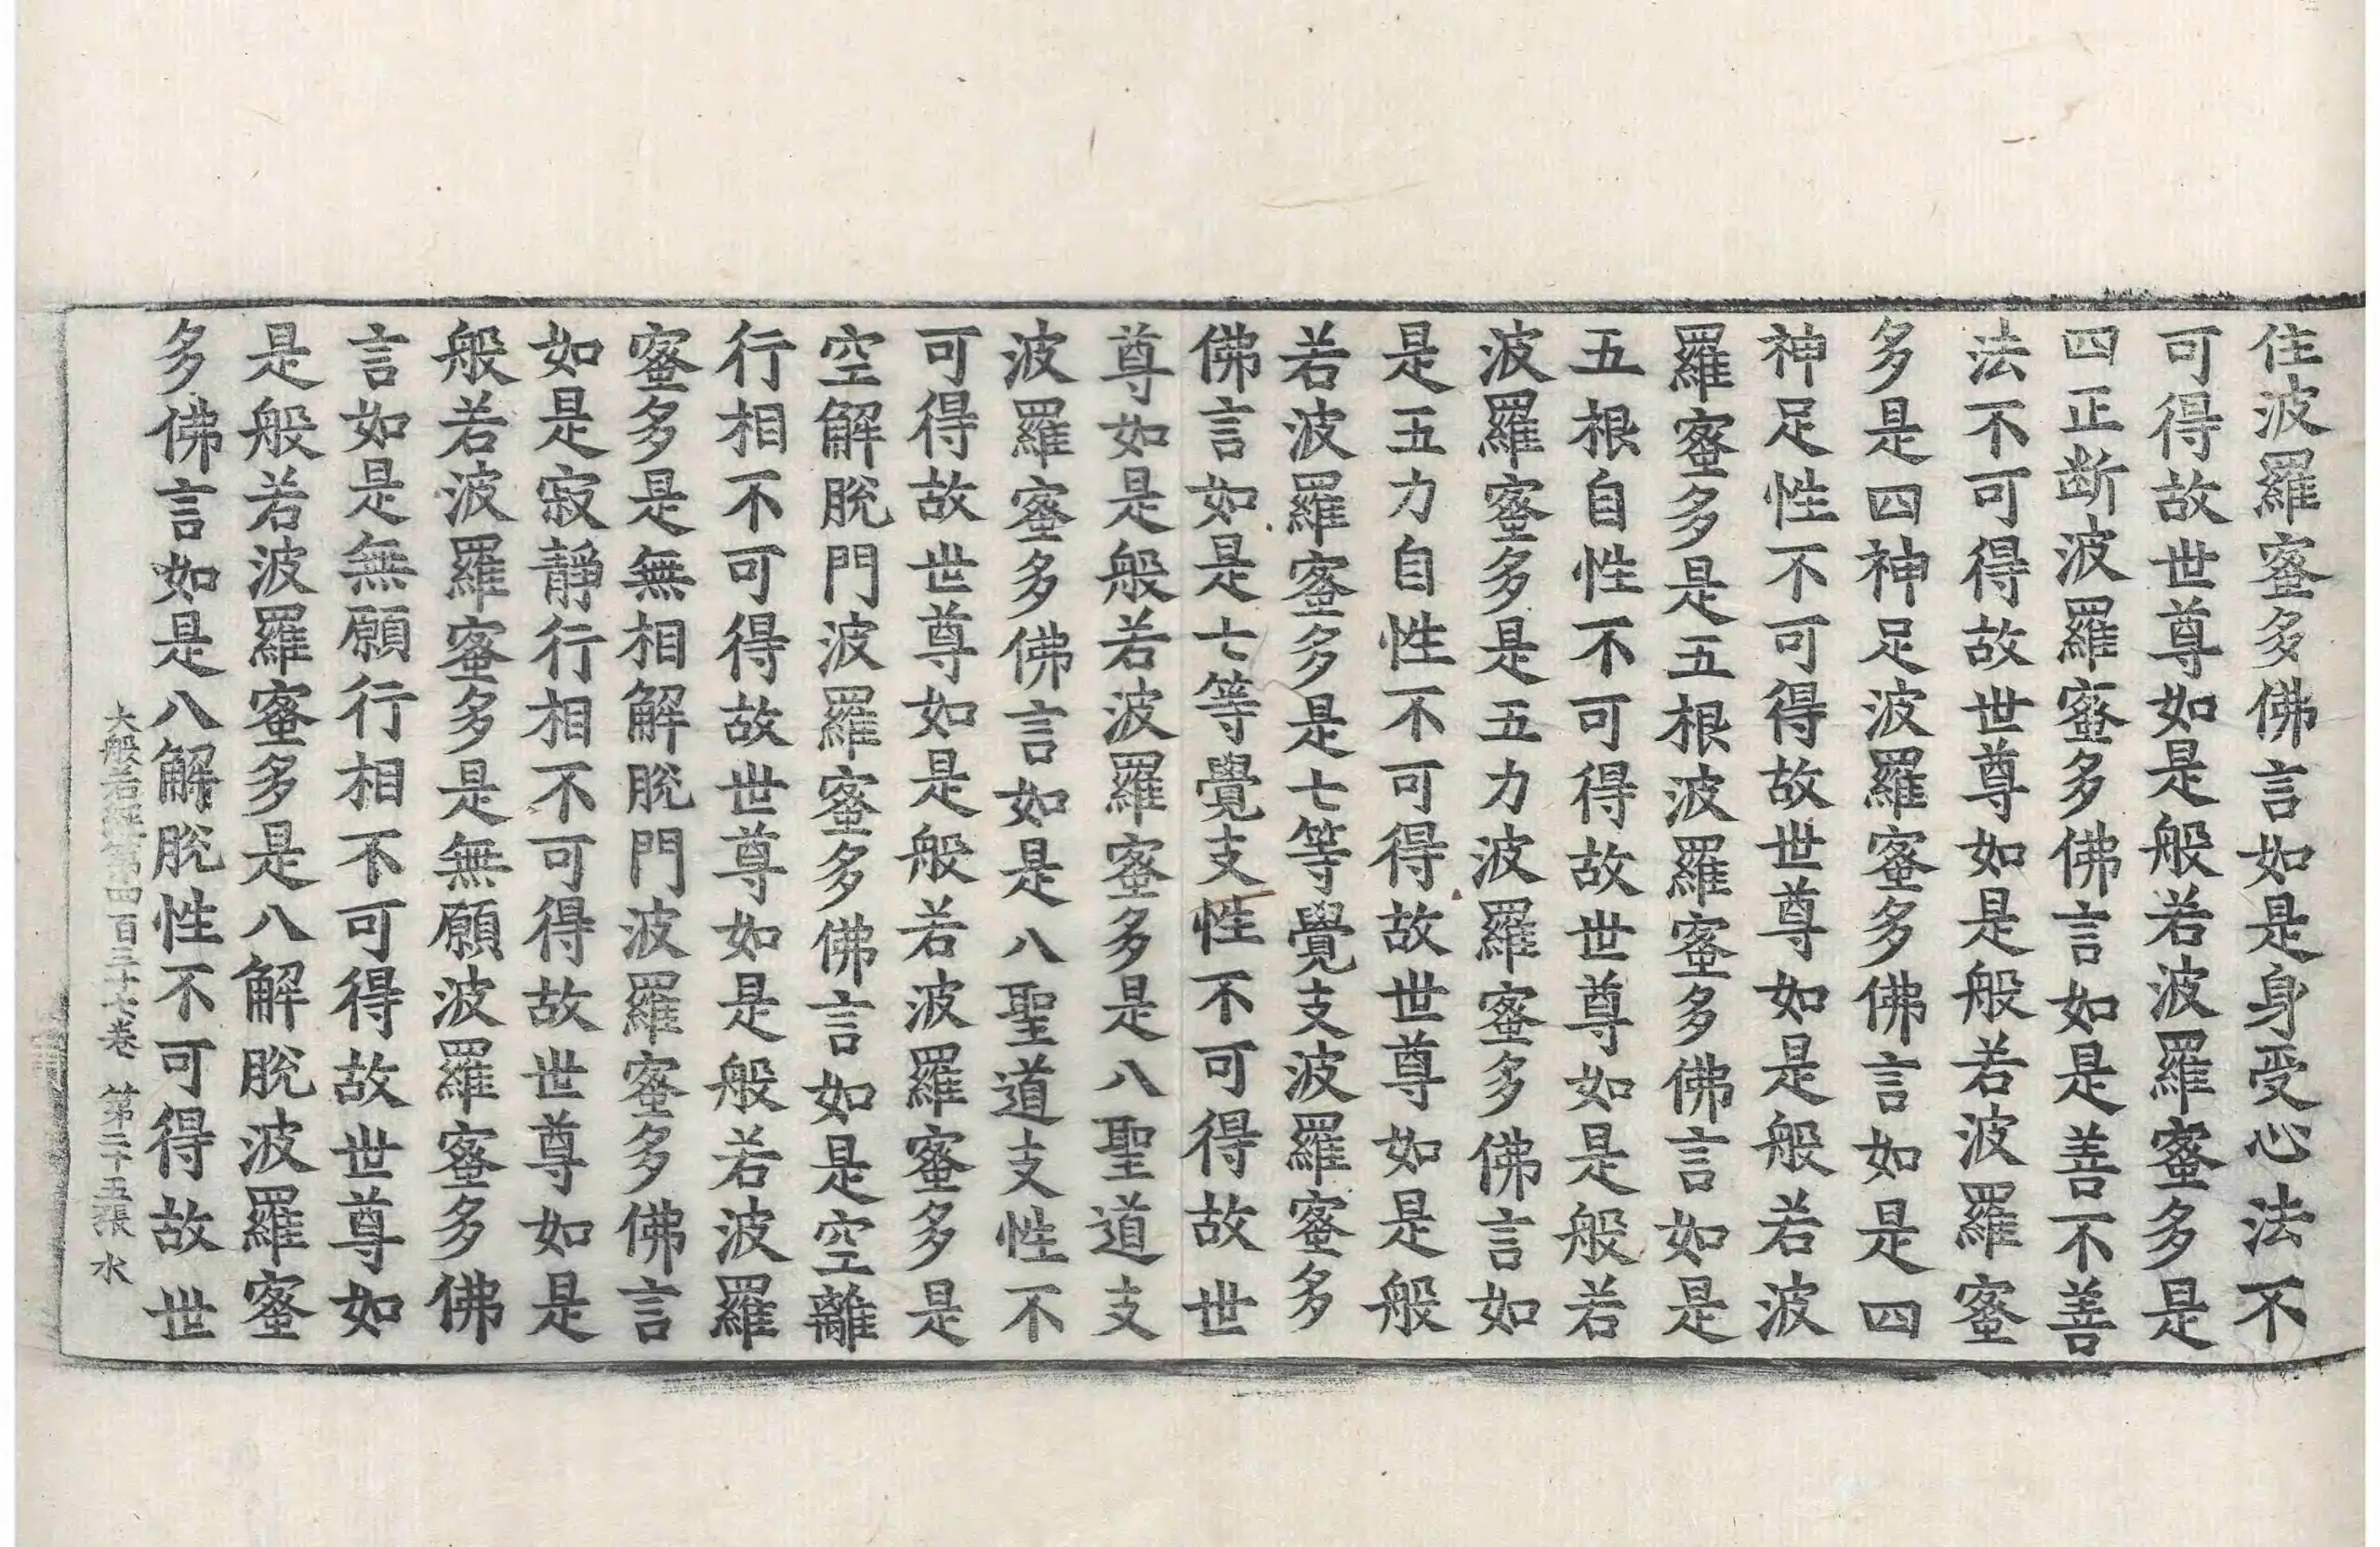 住波羅蜜多佛言如是身受心法不
可得故世尊如是般若波羅蜜多是
四正断波羅蜜多佛言如是善不善
法不可得故世尊如是般若波羅蜜
多是四神足波羅蜜多佛言如是四
神足性不可得故世尊如是般若波
羅蜜多是五根波羅蜜多佛言如是
五根自性不可得故世尊如是般若
波羅蜜多是五力波羅蜜多佛言如
是五力自性不可得故世尊如是般
若波羅蜜多是七等覺支波羅蜜多
佛言如是七等覺支性不可得故世
尊如是般若波羅蜜多是八聖道支
波羅蜜多佛言如是八聖道支性不
可得故世尊如是般若波羅蜜多是
空解脫門波羅蜜多佛言如是空離
行相不可得故世尊如是般若波羅
蜜多是無相解脫門波羅蜜多佛言
如是寂靜行相不可得故世尊如是
般若波羅蜜多是無願波羅蜜多佛
言如是無願行相不可得故世尊如
是般若波羅蜜多是八解脫波羅蜜
多佛言如是八解脫性不可得故世
大般若經第四百三十七卷 第二十五張 水